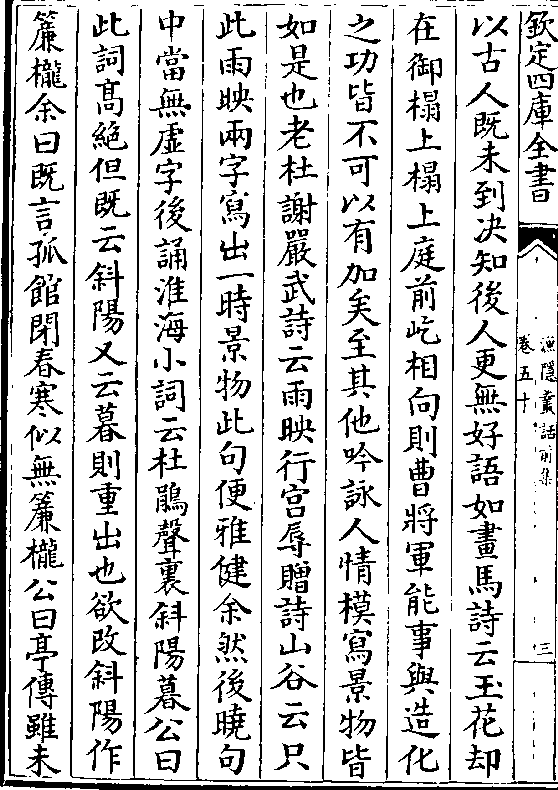 欽定四庫全書
漁隱叢話前集
卷五十
三
以古人既未到決知後人更無好語如畫馬詩云玉花却
在御榻上榻上庭前屹相向則曹將軍能事與造化
之功皆不可以有加矣至其他吟詠人情模寫景物皆
如是也老杜謝嚴武詩云雨映行宫辱贈詩山谷云只
此雨映兩字寫出一時景物此句便雅健余然後曉句
中當無虚字後誦淮海小詞云杜鵑聲裏斜陽暮公曰
此詞髙絶但既云斜陽又云暮則重出也欲改斜陽作
簾櫳余曰既言孤館閉春寒似無簾櫳公曰亭傳雖未